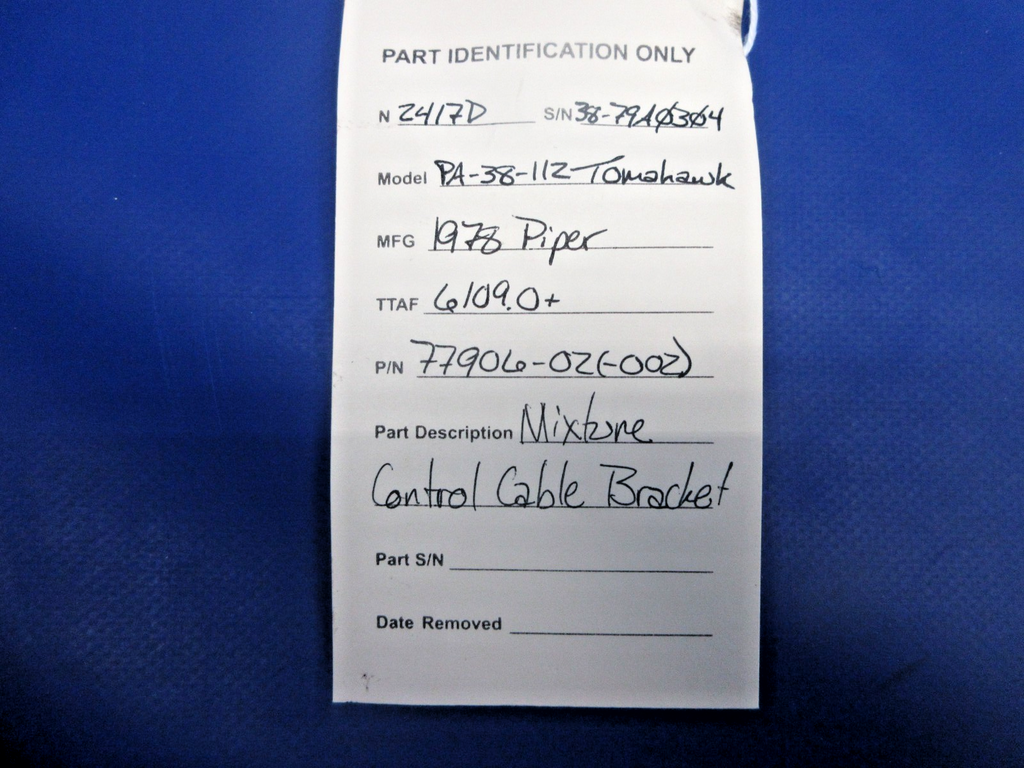 PART IDENTIFICATION ONLY
N 2417D S/N 38-79A0304
Model PA-38-112-Tomahawk
MFG 1978 Piper
TTAF 6109.0+
P/N 77906-02(-002)
Part Description Mixture
Control Cable Bracket
Part S/N
Date Removed